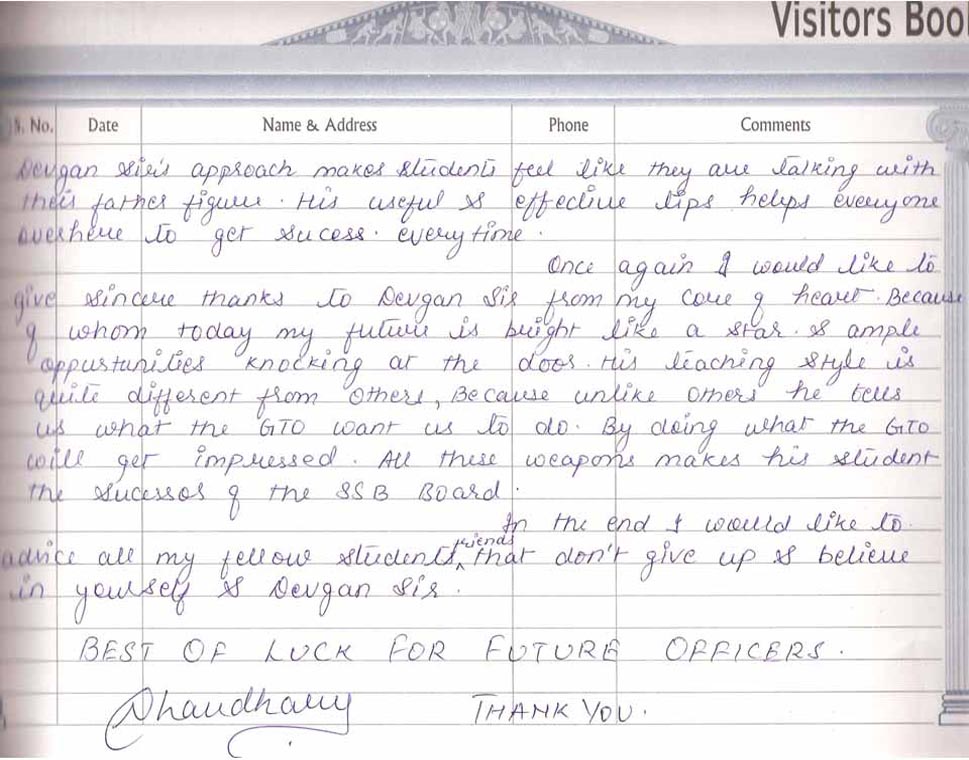 Visitors Boo
S. No. Date Name & Address Phone Comments
Devgan Sir's approach makes students feel like they are talking with
their father figure. His useful & effective tips helps everyone
overhere to get sucess. everytime.
Once again I would like to
give sincere thanks to Devgan Sir from my core of heart. Because
of whom today my future is bright like a star. & ample
oppurtunities knocking at the door. His teaching style is
quite different from others, Because unlike others he tells
us what the GTO want us to do. By doing what the GTO
will get impressed. All these weapons makes his student
the sucessor of the SSB Board.
In the end I would like to
advice all my fellow students, friends that don't give up & believe
in yourself & Devgan Sir.
BEST OF LUCK FOR FUTURE OFFICERS.
Chaudhary THANK YOU.